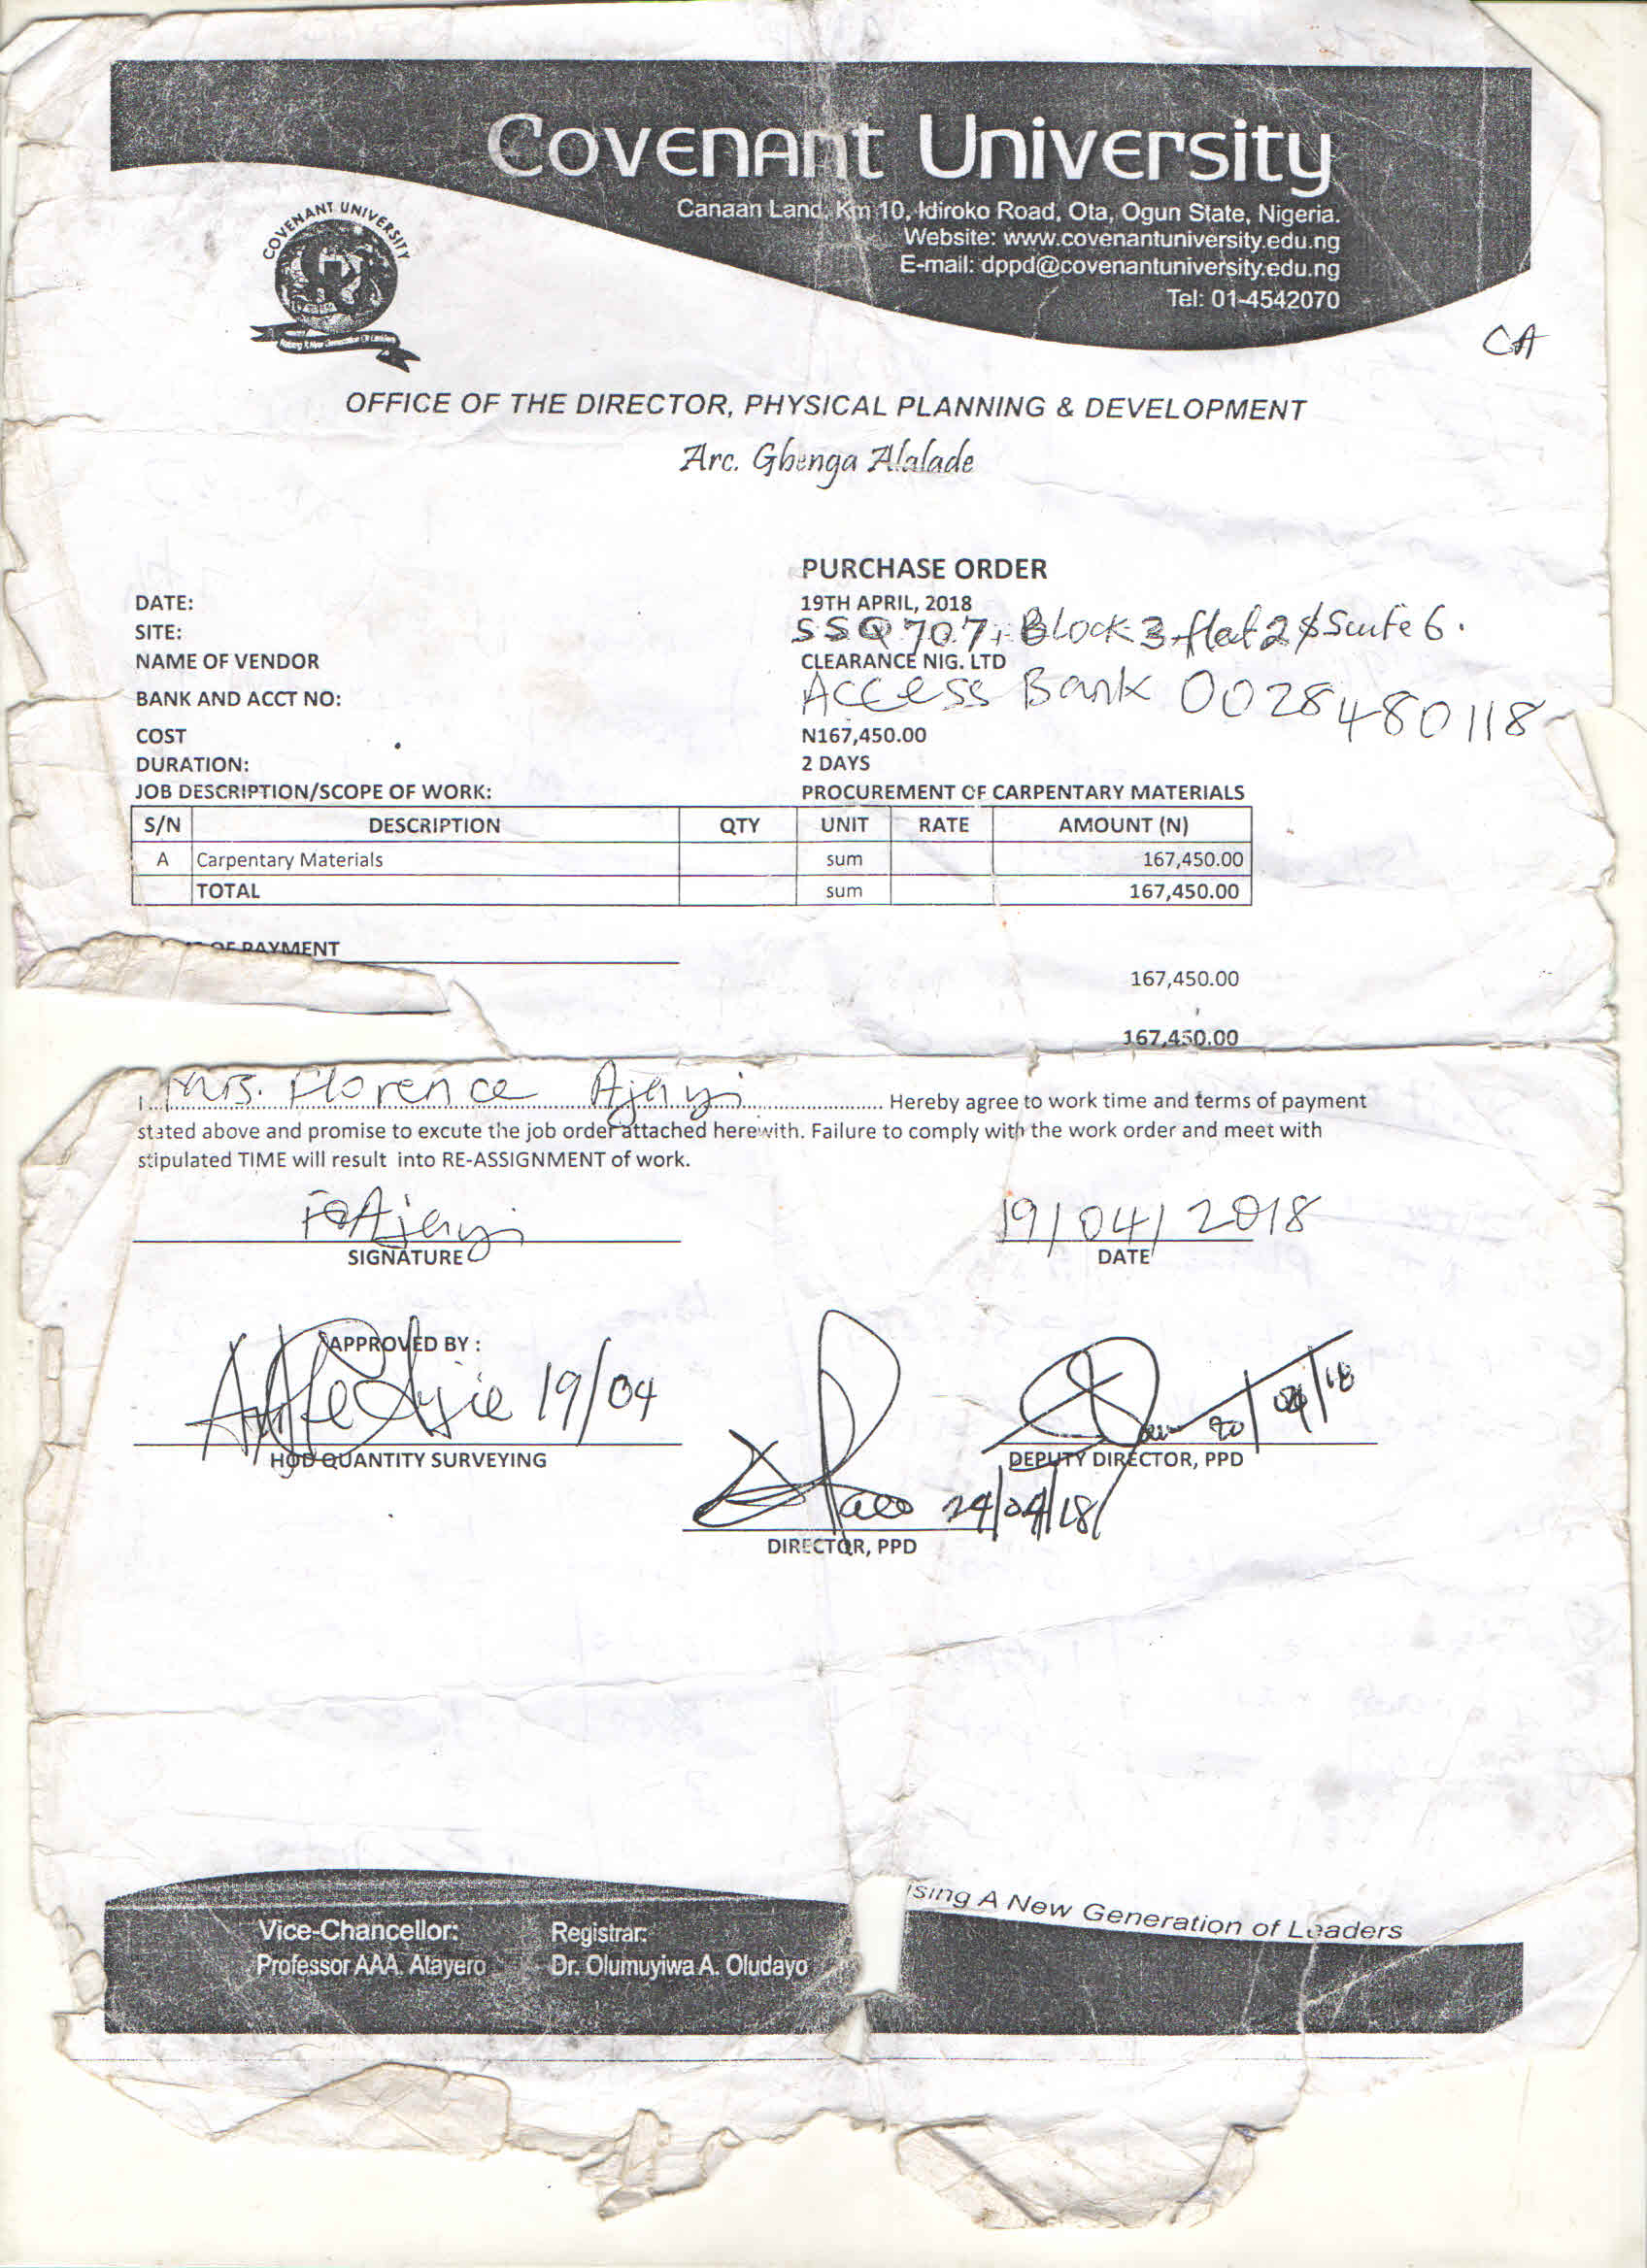 Covenant University
Canaan Land, Km 10, Idiroko Road, Ota, Ogun State, Nigeria.
Website: www.covenantuniversity.edu.ng
E-mail: dppd@covenantuniversity.edu.ng
Tel: 01-4542070
COVENANT UNIVERSITY
CA
OFFICE OF THE DIRECTOR, PHYSICAL PLANNING & DEVELOPMENT
Arc. Gbenga Alalade
PURCHASE ORDER
DATE: 19TH APRIL, 2018
SITE: SSQ 707, Block 3 flat 2 & Suite 6.
NAME OF VENDOR CLEARANCE NIG. LTD
BANK AND ACCT NO: Access Bank 0028480118
COST N167,450.00
DURATION: 2 DAYS
JOB DESCRIPTION/SCOPE OF WORK: PROCUREMENT OF CARPENTARY MATERIALS
S/N DESCRIPTION QTY UNIT RATE AMOUNT (N)
A Carpentary Materials sum 167,450.00
TOTAL sum 167,450.00
OF PAYMENT
167,450.00
167,450.00
I Mrs. Florence Ajayi Hereby agree to work time and terms of payment
stated above and promise to excute the job order attached herewith. Failure to comply with the work order and meet with
stipulated TIME will result into RE-ASSIGNMENT of work.
FAjayi 19/04/2018
SIGNATURE DATE
APPROVED BY :
19/04
20/04/18
HOD QUANTITY SURVEYING DEPUTY DIRECTOR, PPD
24/04/18
DIRECTOR, PPD
ising A New Generation of Leaders
Vice-Chancellor: Registrar:
Professor AAA. Atayero Dr. Olumuyiwa A. Oludayo